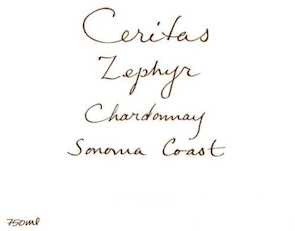 Ceritas
Zephyr
Chardonnay
Sonoma Coast
750ml